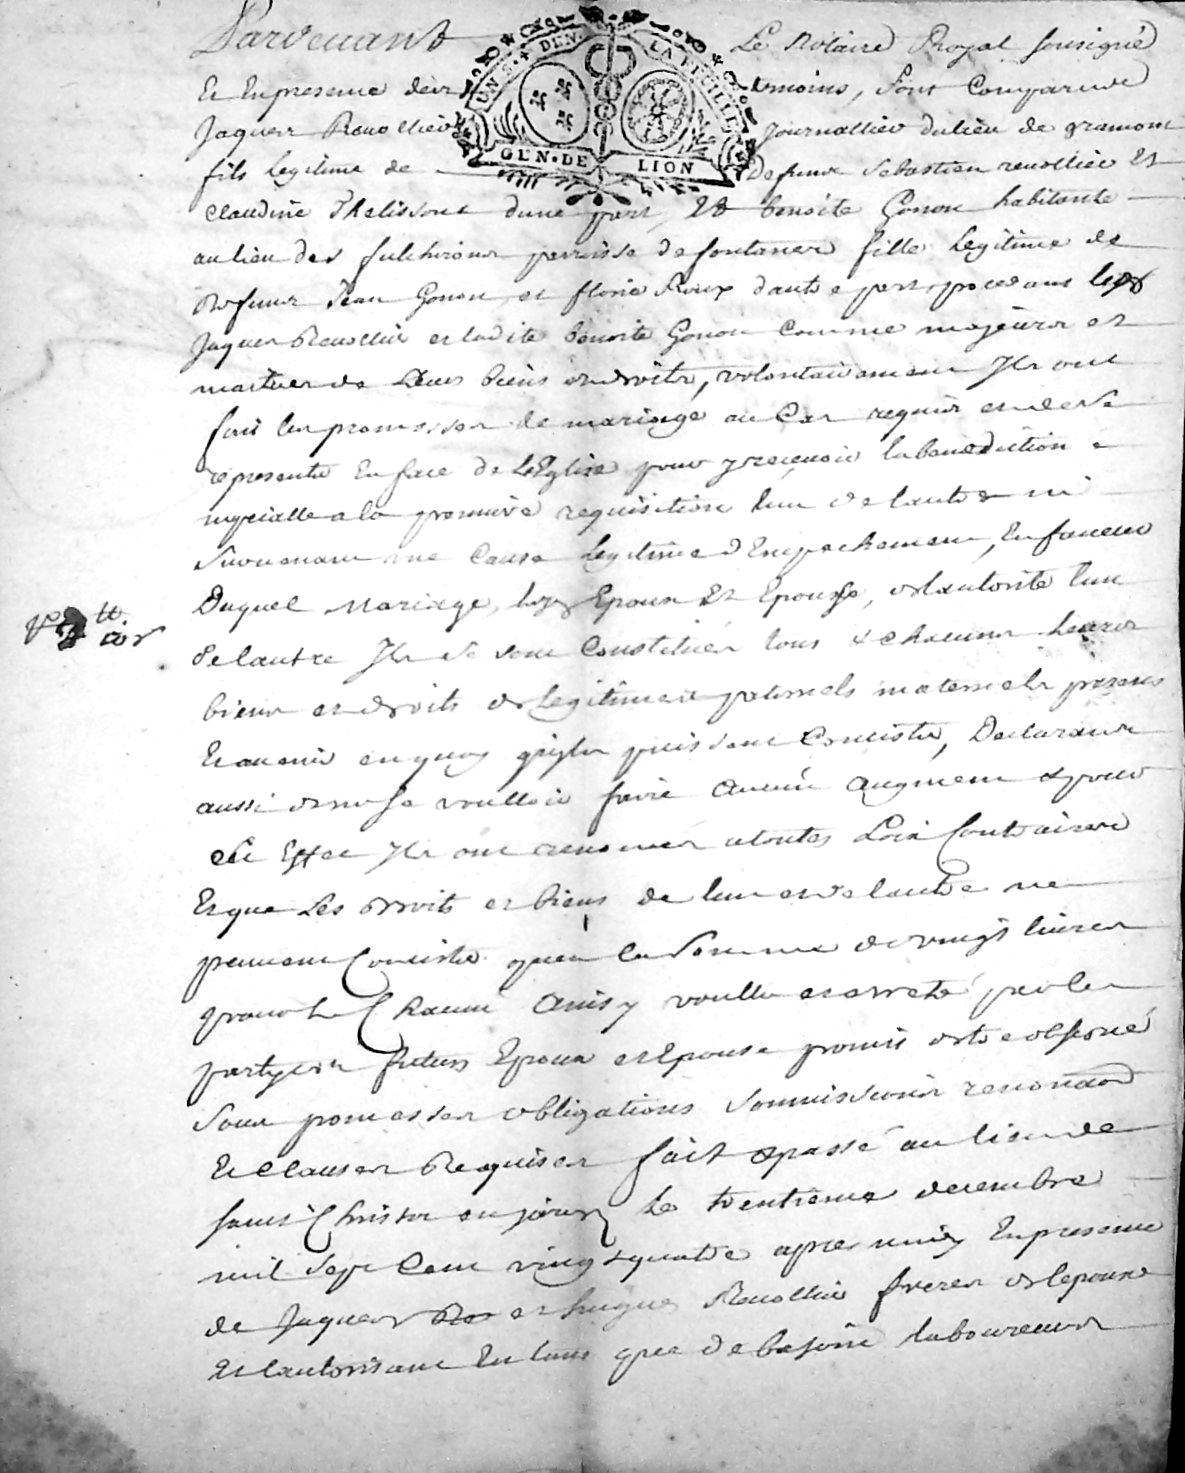 Pardevant Le Notaire Royal sousigné
Et En presence des temoins, sont Comparus
Jaques Revollier journallier du lieu de gramont
UN S. + DEN. LA FEUILLE
GEN. DE LION
fils legitime de Defunt Sebastien revollier Et
Claudine Thelissone dune part, Et benoite Gonon habitante
au lieu des fulchirons parroisse de fontanes fille legitime de
Defunt Jean Gonon et florie Roux dautre part, procedant led
Jaques Revollier et ladite benoite Gonon Comme majeurs et
maitres de Leurs biens et droits, volontairement Ils ont
fait les promesses de mariage au Cas requis et de se
representer En face de LEglise pour y recevoir la benediction
nuptialle a la premiere requisition lun de lautre ni
survenant une Cause legitime dEmpechement, En faveur
Duquel Mariage, lesd Epoux Et Epouse, de lautorité lun
de lautre Ils se sont Constitués tous & chacuns leurs
biens et droits de legitime paternels maternels presents
Et avenir en quoy quils puissent Consister, Declarant
aussi de ne se voulloir faire aucun augment & pour
cet Effet Ils ont renoncer a toutes Loix Contraires
Et que Les droits et biens de lun et de lautre ne
peuvent Consister qua la somme de vingt livres
pour Chacun Ainsy voullu et arreté par les
partyes futurs Epoux et Epouse promis detre observé
sous promesses obligations soumissions renonciaons
Et Clauses Requises fait & passé au lieu de
saint Christo en jarez Le trentieme decembre
mil sept Cent vingt quatre apres midy En presence
de Jaques et hugues Revollier freres de lepoux
Et lautorisant En tant que de besoin laboureurs